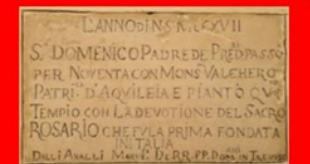 L'ANNO DI N S
S. DOMENICO PADRE DE PRED. PASSÒ
PER NOVENTA CON MONS VALCHERO
PATRI. D'AQVILEIA E PIANTÒ QV
TEMPIO CON LA DEVOTIONE DEL SACRO
ROSARIO CHE FV LA PRIMA FONDATA
IN ITALIA
DALLI ANALLI DE RR. PP. DOM.